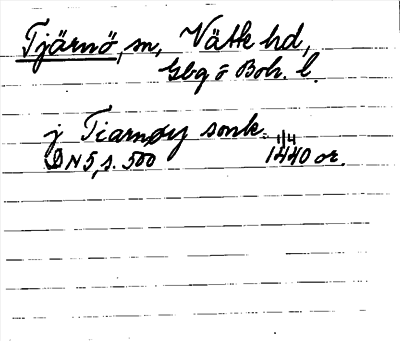 Tjärnö, sn, Vätte hd,
Gbg o Boh. l.
j Tiarnøy sonk. 1/4
DN 5, s. 500 1440 or.